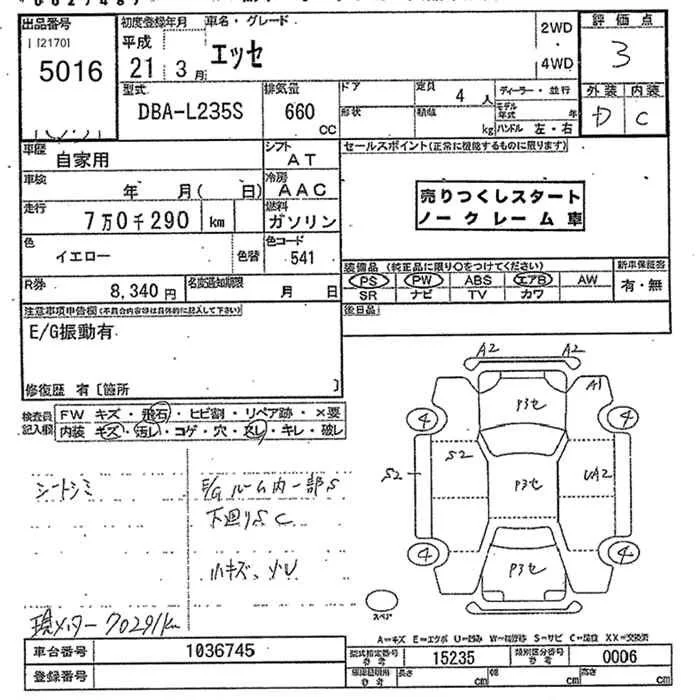 出品番号
5016
初度登録年月
平成
21 3月
車名・グレード
エッセ
2WD
4WD
評価点
3
型式
DBA-L235S
排気量
660 CC
ドア
形状
定員 4 人
積載 kg
ディーラー・並行
モデル年式 年
ハンドル 左・右
外装 内装
D C
車歴
自家用
シフト
AT
車検
年 月( 日)
冷房
AAC
走行
7万0千290 km
燃料
ガソリン
色
イエロー
色替
色コード
541
セールスポイント(正常に機能するものに限ります)
売りつくしスタート
ノークレーム車
R券
8,340円
名変通知期限
月 日
装備品 (純正品に限り○をつけてください)
新車保証書
PS PW ABS エアB AW
SR ナビ TV カワ
有・無
後日品
注意事項申告欄(不具合内容は具体的に記入して下さい)
E/G振動有
修復歴 有 [箇所 ]
検査員記入欄
FW キズ・飛石・ヒビ割・リペア跡・×要
内装 キズ・汚レ・コゲ・穴・スレ・キレ・破レ
シートシミ
E/Gルーム内一部S
下廻りSC
小キズ、小U
現メーター70291km
A2 A2
A1
P3セ
4 4
S2
S2
P3セ
UA2
4 4
P3セ
スペア
A=キズ E=エクボ U=凹み W=補修跡 S=サビ C=腐蝕 XX=交換済
車台番号
1036745
登録番号
型式指定番号 参考
15235
類別区分番号 参考
0006
長さ cm
幅 cm
高さ cm